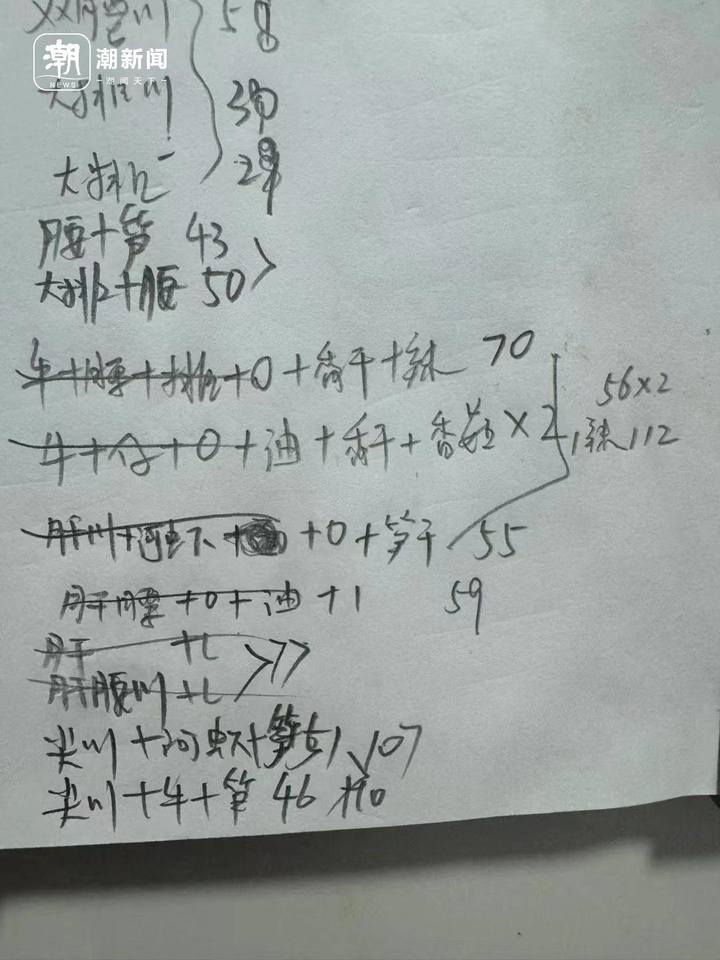 潮新闻
NEWS
潮闻天下
58
大排川
30
大排 28
腰+笋 43
大排+腰 50
牛+腰+大排+0+香干+辣 70
56×2
牛+仔+0+油+香干+香菇×2 1辣 112
肝川+河虾+0+笋干 55
肝腰+0+油+1 59
肝 +L
77
肝腰川+L
尖川+河虾+笋 51 107
尖川+牛+笋 46 +10